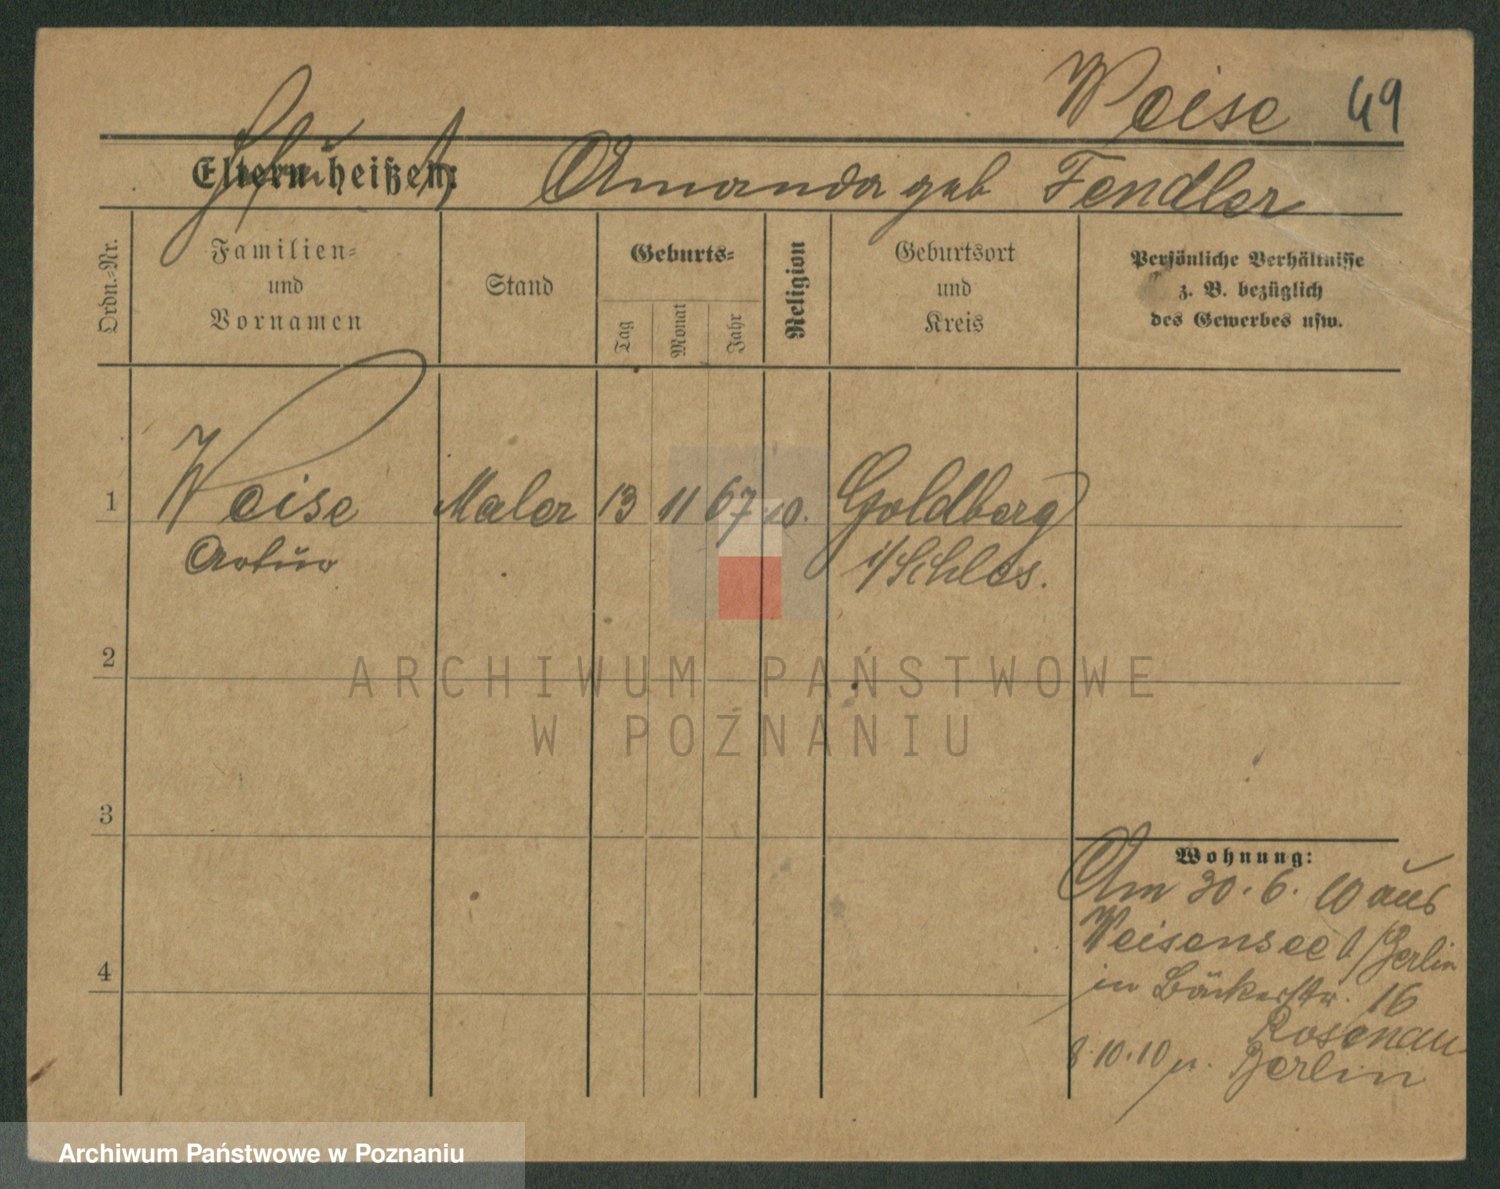 Weise 49
Eltern heißen: Amanda geb Fendler
Ordn.-Nr.
Familien-
und
Vornamen
Stand
Geburts-
Tag
Monat
Jahr
Religion
Geburtsort
und
Kreis
Persönliche Verhältnisse
z. B. bezüglich
des Gewerbes usw.
1 Weise Maler 13 11 67 Goldberg
Artur i/Schles.
ARCHIWUM PAŃSTWOWE
W POZNANIU
2
3
4
Wohnung:
Am 30.6.10 aus
Weisensee b/Berlin
in Bäckerstr. 16
Rosenau
8.10.10 n. Berlin
Archiwum Państwowe w Poznaniu